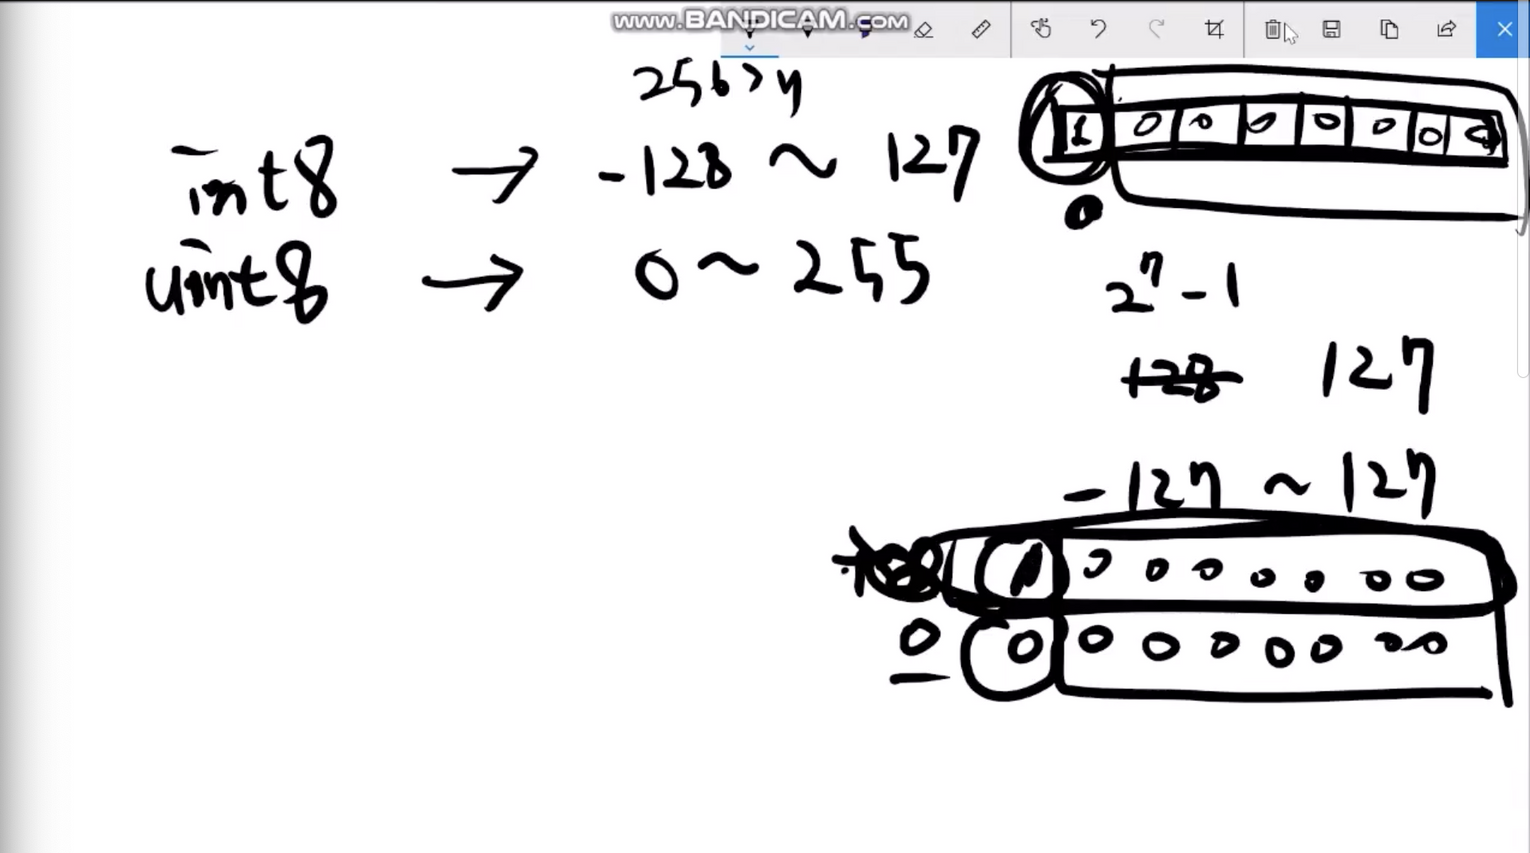 www.BANDICAM.com
256개
int8 → -128 ~ 127
uint8 → 0 ~ 255
1 0 0 0 0 0 0 0
0
2⁷ - 1
128 127
-127 ~ 127
0 0 0 0 0 0 0
0 0 0 0 0 0 0 0 0